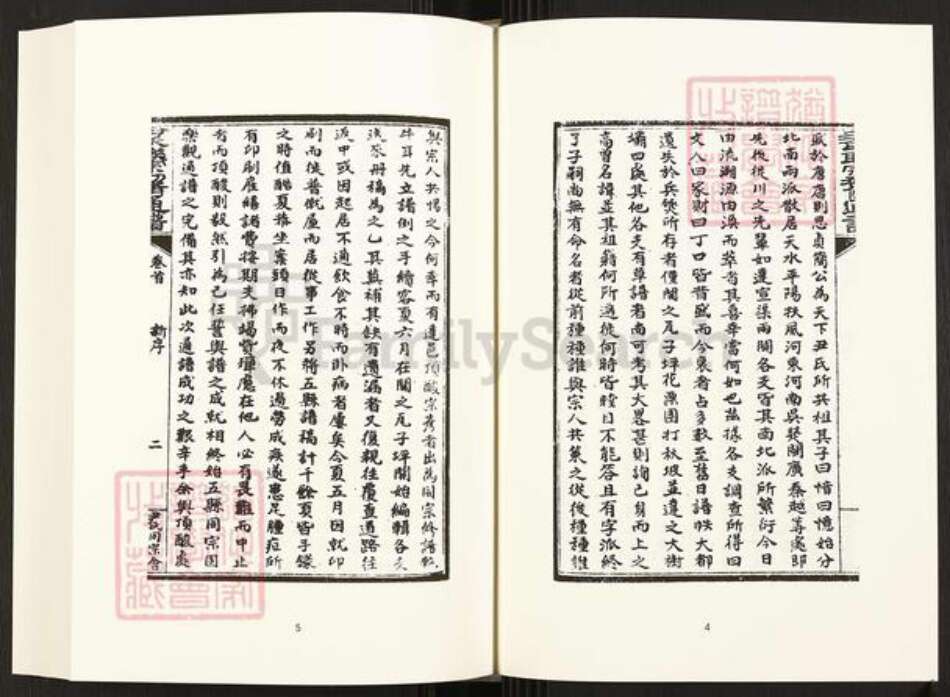 盛於唐唐則思貞簡公為天下尹氏所共祖其子曰愔曰憶始分
北南兩派散居天水平陽扶風河東河南吳楚閩廣秦越等處即
先後從川之先輩如遵宣渠兩開各支皆其南北派所繁衍今日
由流溯源由渙而萃者其喜幸當何如也茲據各支調查所得曰
文人曰家財曰丁口皆昔盛而今衰者占多數至舊日譜帙大都
遺失於兵燹所存者僅開之瓦子坪花漁園打秋坡並遵之大街
壩四處其他各支有草譜者尚可考其大畧甚則詢己身而上之
高曾名諱並其祖籍何所適徙何時皆瞠目不能答且有字派終
了子嗣尚無有命名者從前種種誰與宗人共策之從後種種誰
與宗人共惕之今何幸而有達邑頂酸宗秀者出為聞宗終譜執
牛耳先立譜例之手續客夏六月在開之瓦子坪開始編輯各支
流水冊稿為之乙其蕪補其缺有遺漏者又復親往履查遇路往
返中或因起居不適飲食不時而卧病者屢矣今夏五月因就印
刷而徙普僦屋而居從事工作另將五縣譜稿計千餘頁皆手錄
之時值酷夏恭坐案頭日作而夜不休過勞成疾遂患足腫症所
有印刷雇繕諸費按期支拂竭貲壚應在他人必有畏難而中止
者而頂酸則毅然引為己任誓與譜之成就相終始五縣同宗因
樂觀通譜之完備其亦知此次通譜成功之艱辛乎余與頂酸處
卷首
新序
二
尹氏同宗會
FamilySearch
5
4